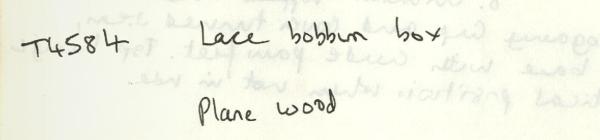 T4584 Lace bobbin box
Plane wood